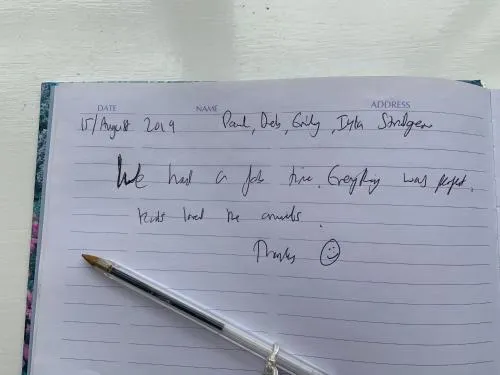 DATE NAME ADDRESS
15/August 2019 Paul, Debs, Emily,
We had a fab time. Everything was perfect.
Kids loved the animals.
Thanks